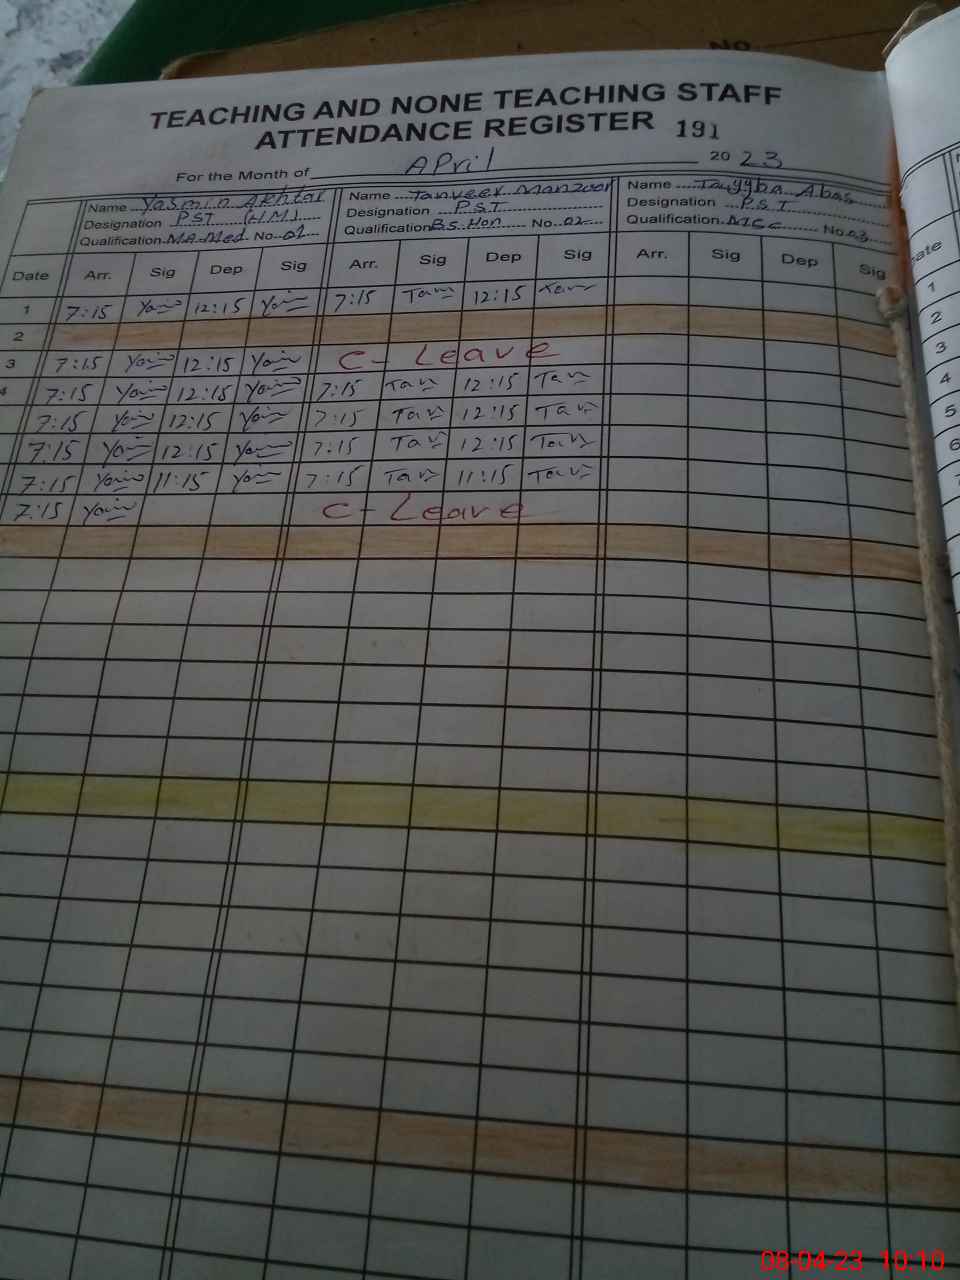 No.
TEACHING AND NONE TEACHING STAFF
ATTENDANCE REGISTER 191
For the Month of APril 20 23
Name Yasmin Akhtar Name Tanveer Manzoor Name Tayyba Abas
Designation PST (HM) Designation P.S.T Designation P.S.T
Qualification MA Med No. 01 Qualification Bs. Hon No. 02 Qualification MSc No. 03
Date Arr. Sig Dep Sig Arr. Sig Dep Sig Arr. Sig Dep Sig
1 7:15 12:15 7:15 Tan 12:15 Tan 1
2 2
3 7:15 12:15 C- Leave 3
4 7:15 12:15 7:15 Tan 12:15 Tan 4
7:15 12:15 7:15 Tan 12:15 Tan 5
7:15 12:15 7:15 Tan 12:15 Tan 6
7:15 11:15 7:15 Tan 11:15 Tan
7:15 C- Leave
08-04-23 10:10